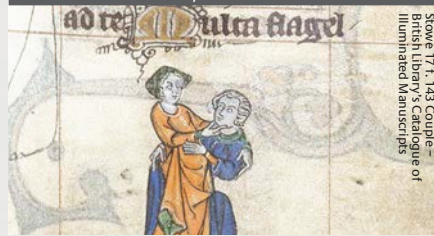 ad te Multa flagel
Stowe 17 f. 143 Couple –
British Library's Catalogue of
Illuminated Manuscripts